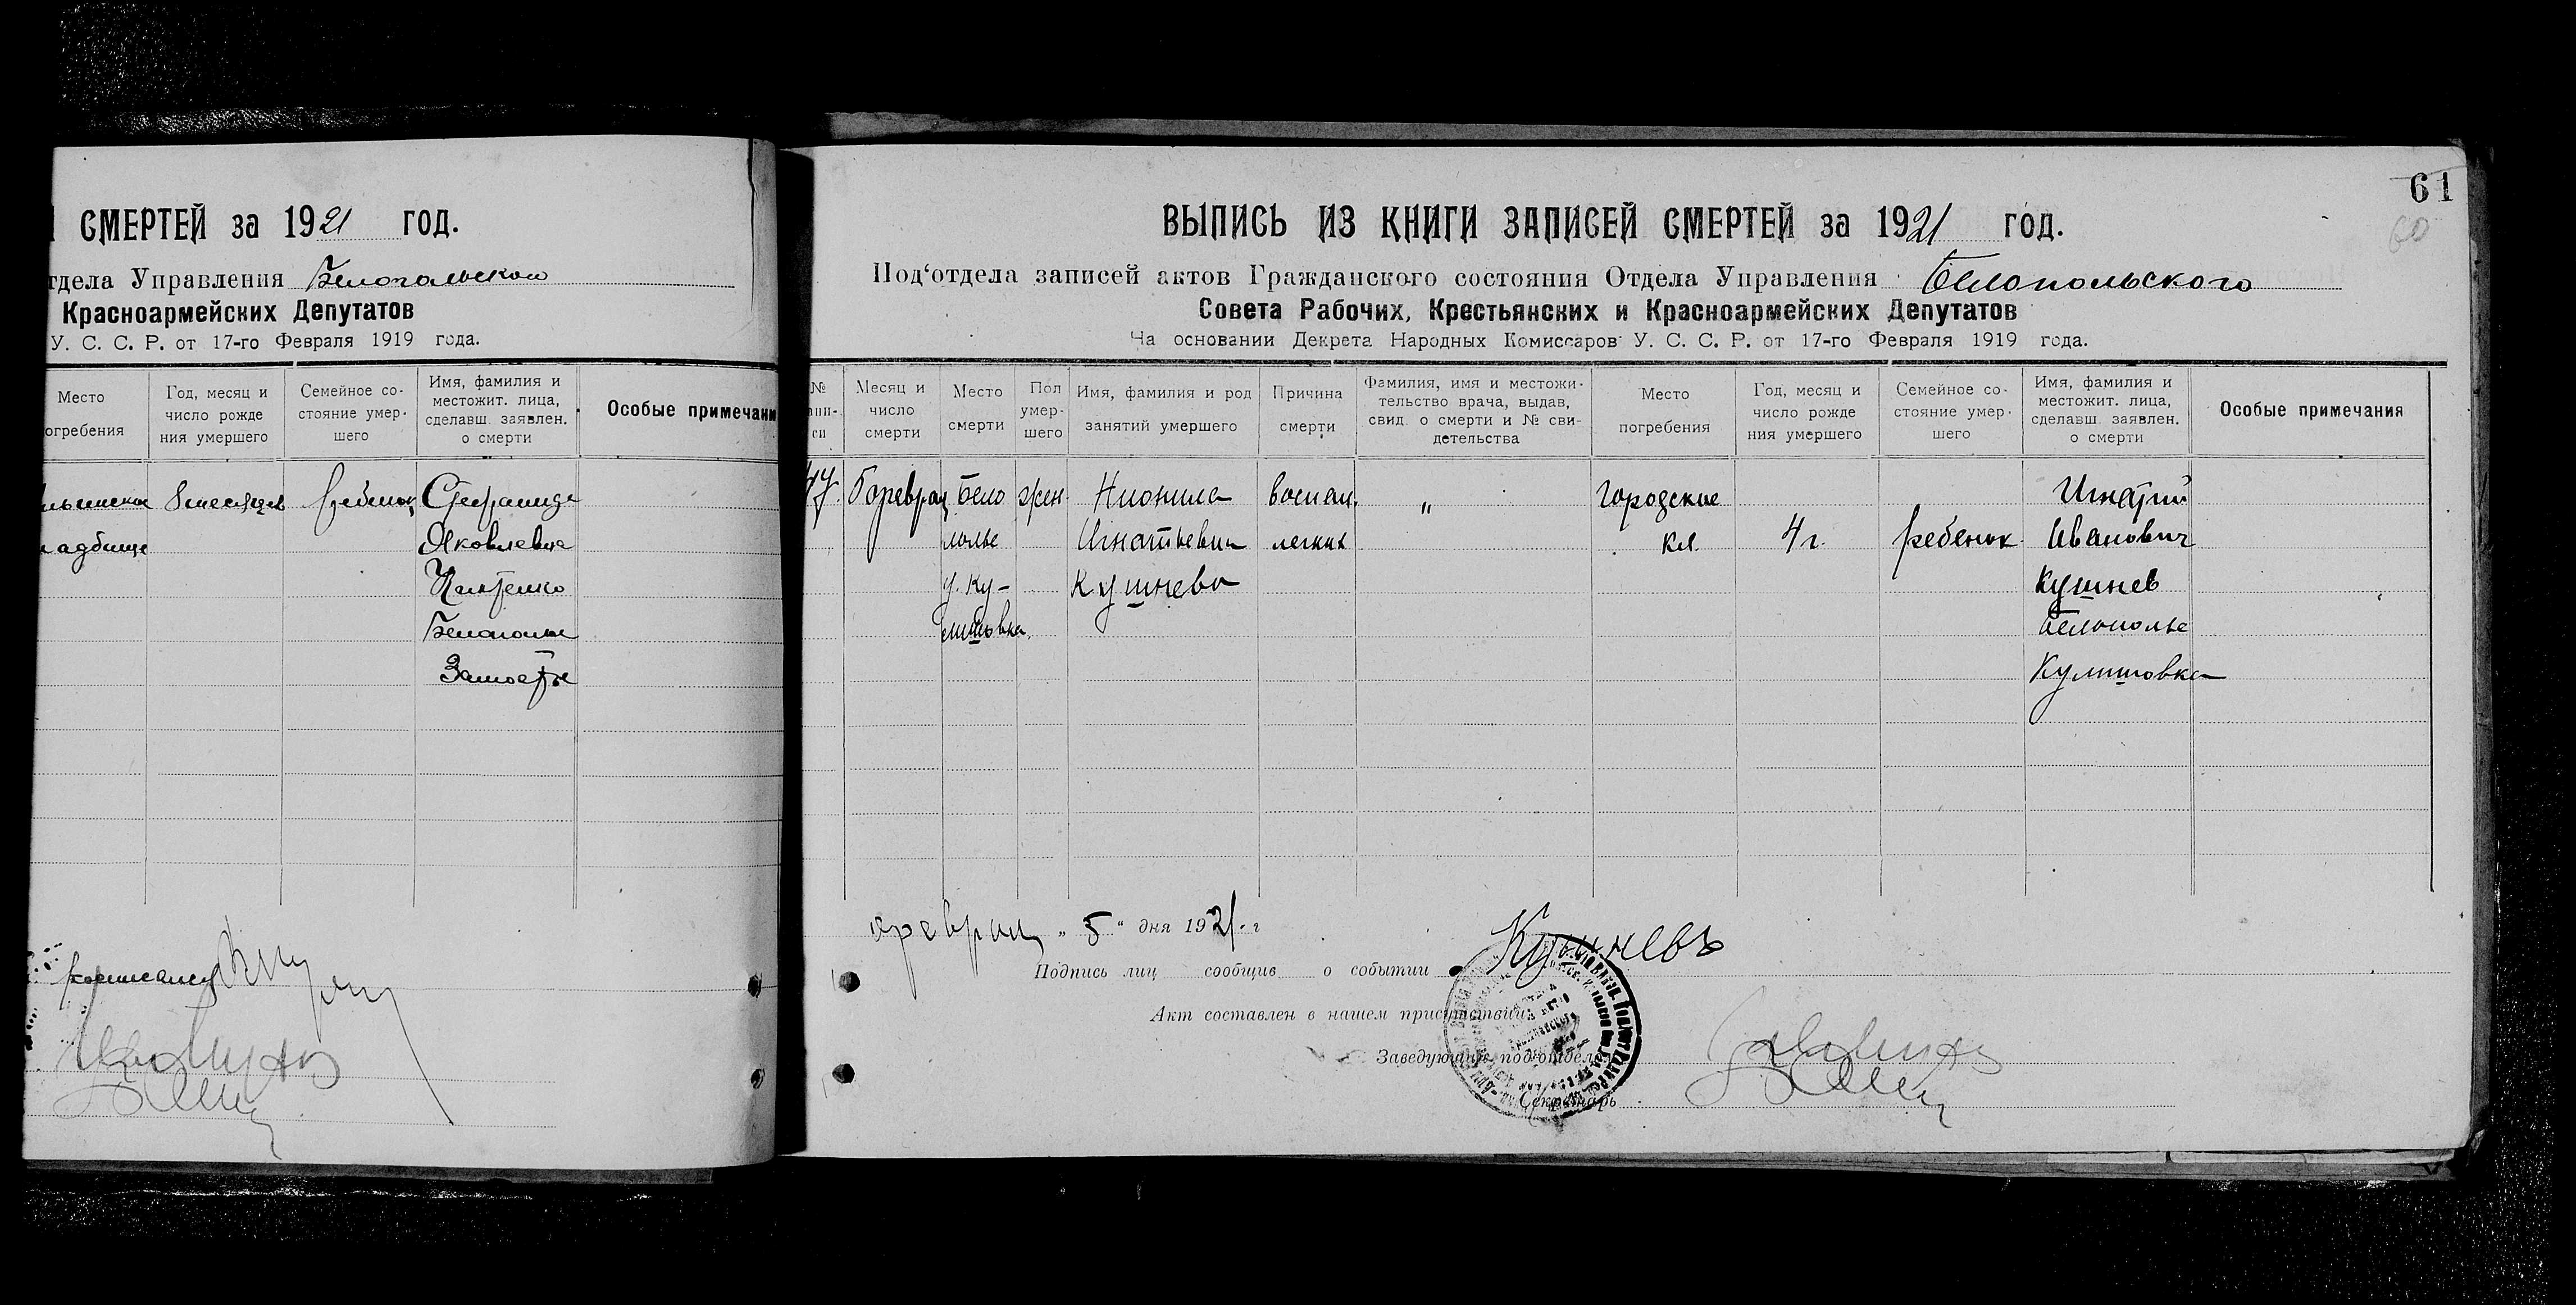 СМЕРТЕЙ за 1921 год.
тдела Управления Белопольского
Красноармейских Депутатов
У. С. С. Р. от 17-го Февраля 1919 года.
Место огребения
Год, месяц и число рожде ния умершего
Семейное со- стояние умер- шего
Имя, фамилия и местожит. лица, сделавш. заявлен. о смерти
Особые примечани
8 месяцев ребенок
адбище Яковлевна
Белополье
Замостье
61
60
ВЫПИСЬ ИЗ КНИГИ ЗАПИСЕЙ СМЕРТЕЙ за 1921 год.
Под‘отдела записей актов Гражданского состояния Отдела Управления Белопольского
Совета Рабочих, Крестьянских и Красноармейских Депутатов
На основании Декрета Народных Комиссаров У. С. С. Р. от 17-го Февраля 1919 года.
№ апи- си
Месяц и число смерти
Место смерти
Пол умер- шего
Имя, фамилия и род занятий умершего
Причина смерти
Фамилия, имя и местожи- тельство врача, выдав, свид. о смерти и № сви- детельства
Место погребения
Год, месяц и число рожде ния умершего
Семейное со- стояние умер- шего
Имя, фамилия и местожит. лица, сделавш. заявлен. о смерти
Особые примечания
Бело жен. Нионила воспал. " городские Игнатий
полье Игнатьевна легких кл. 4 г. ребенок Иванович
у. Ку- Кушнева Кушнев
лишовка. Белополье
Кулишовка
феврал „ 5 “ дня 1921. г
Подпись лиц сообщив о событии Кушневъ
Акт составлен в нашем присутствии
Заведующий под‘отделом
Секретарь